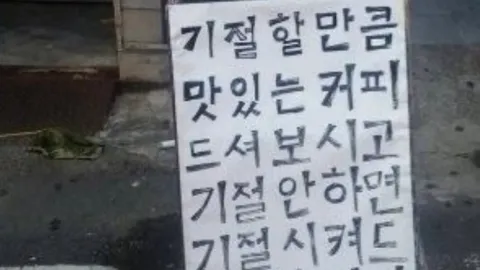 기절할만큼
맛있는커피
드셔보시고
기절안하면
기절시켜드